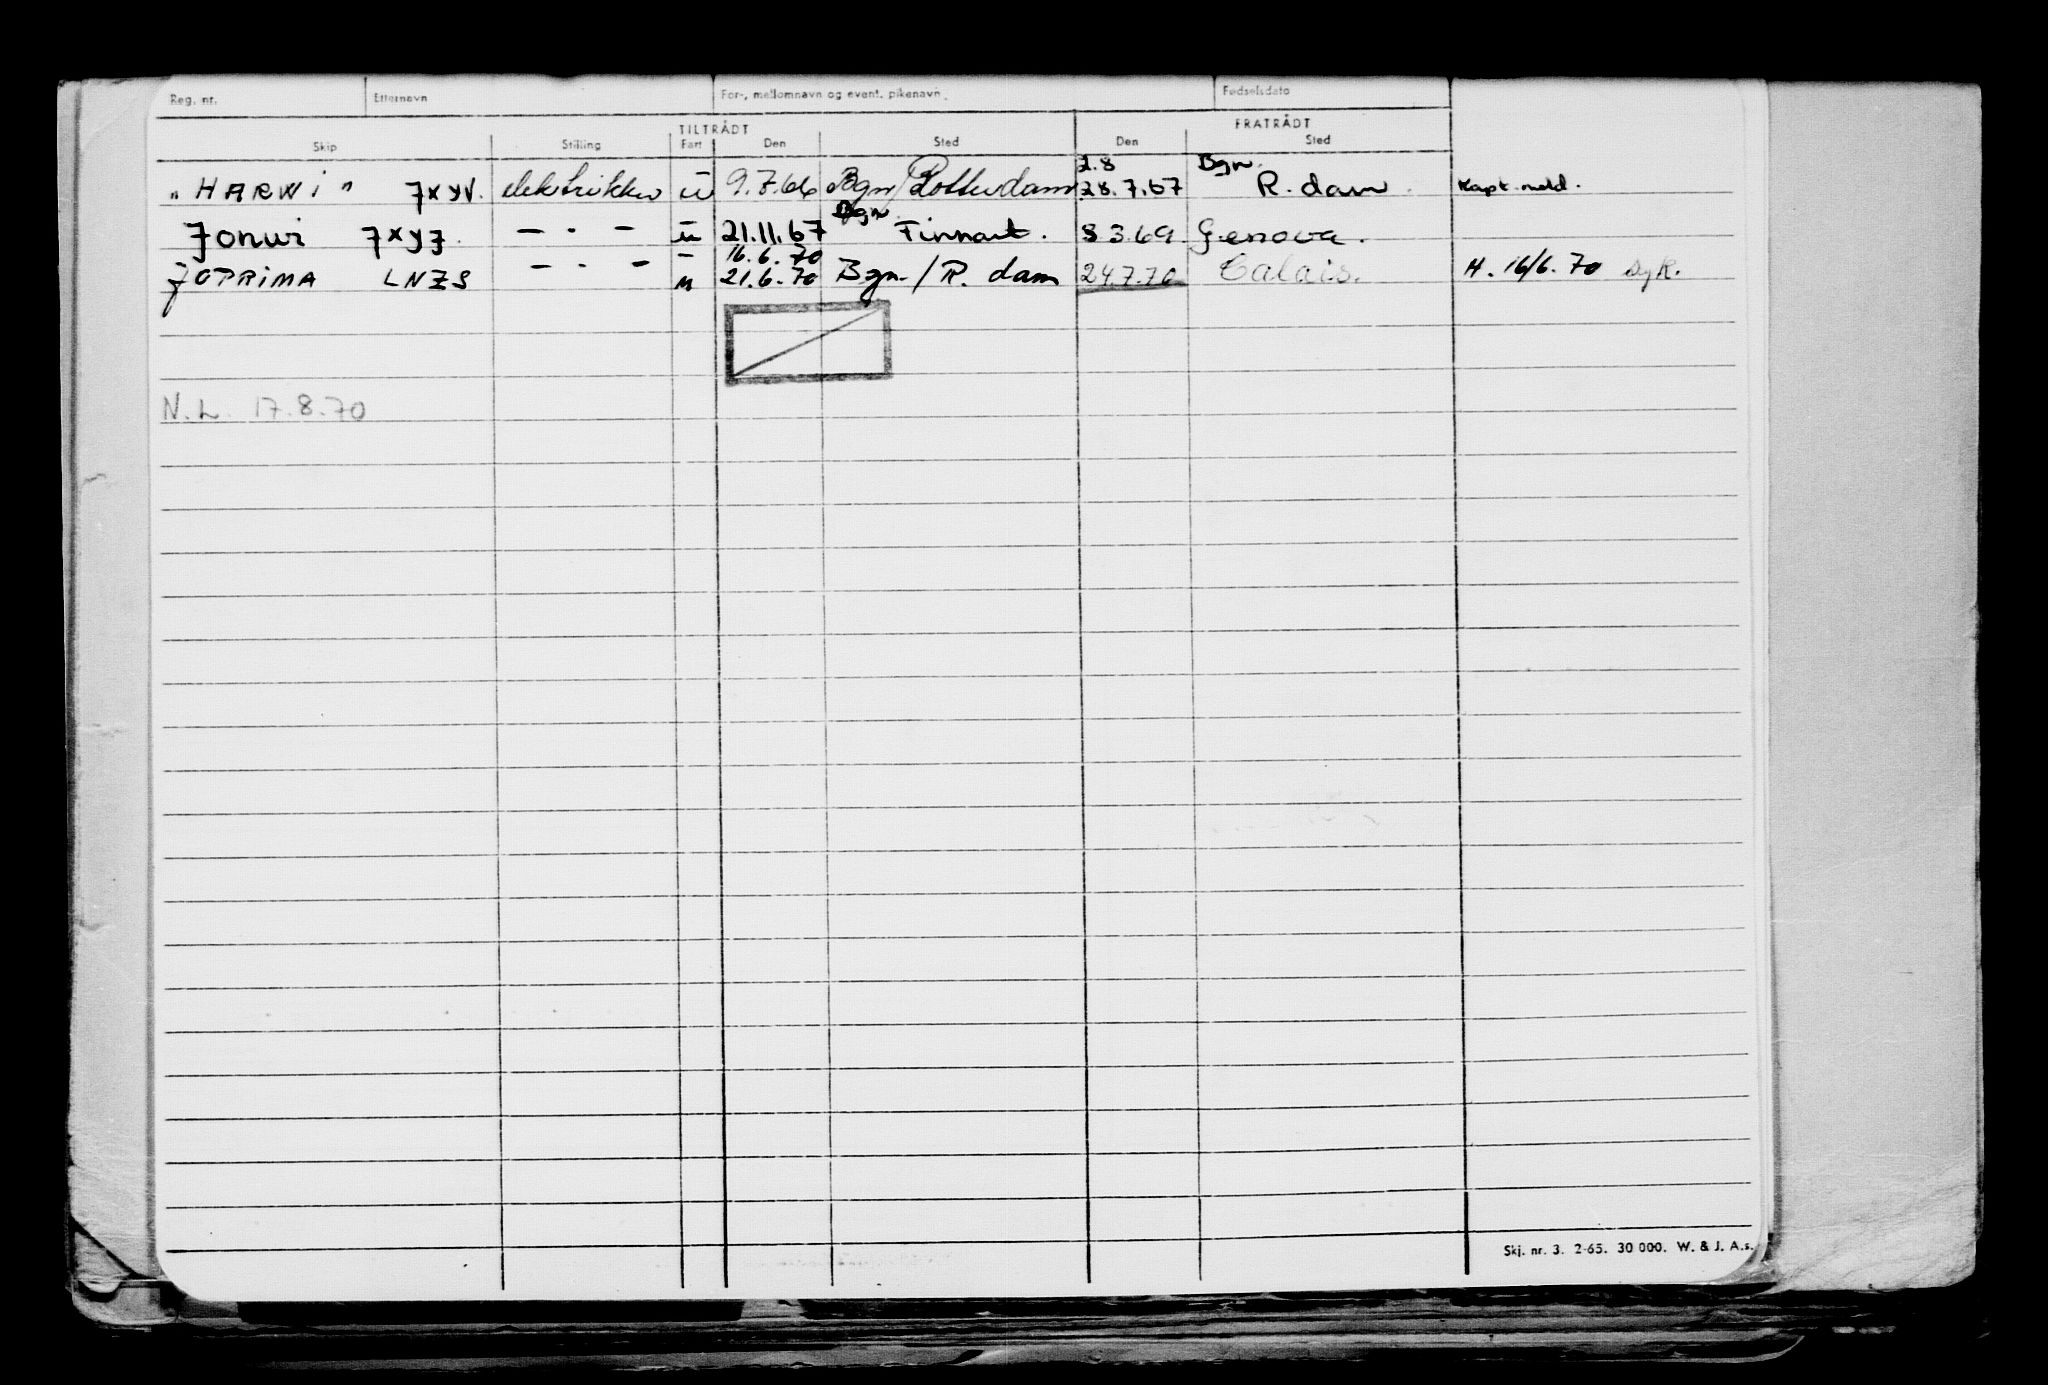 Reg. nr. Etternavn For-, mellomnavn og event. pikenavn. Fødselsdato
TILTRÅDT FRATRÅDT
Skip Stilling Fart Den Sted Den Sted
2.8 Bgn.
"HARWI" JXYV. elektrikker u 9.7.66 Bgn/Rotterdam 28.7.67 R.dam. Kapt. meld.
Bgn.
Jonwi JXYJ. — . — u 21.11.67 Finnart. 8 3.69 Genova.
16.6.70
JOPRIMA LNZS — . — u 21.6.70 Bgn./R.dam 24.7.70 Calais. H. 16/6.70 syk.
N.L. 17.8.70
Skj. nr. 3. 2-65. 30 000. W. & J. A.s.